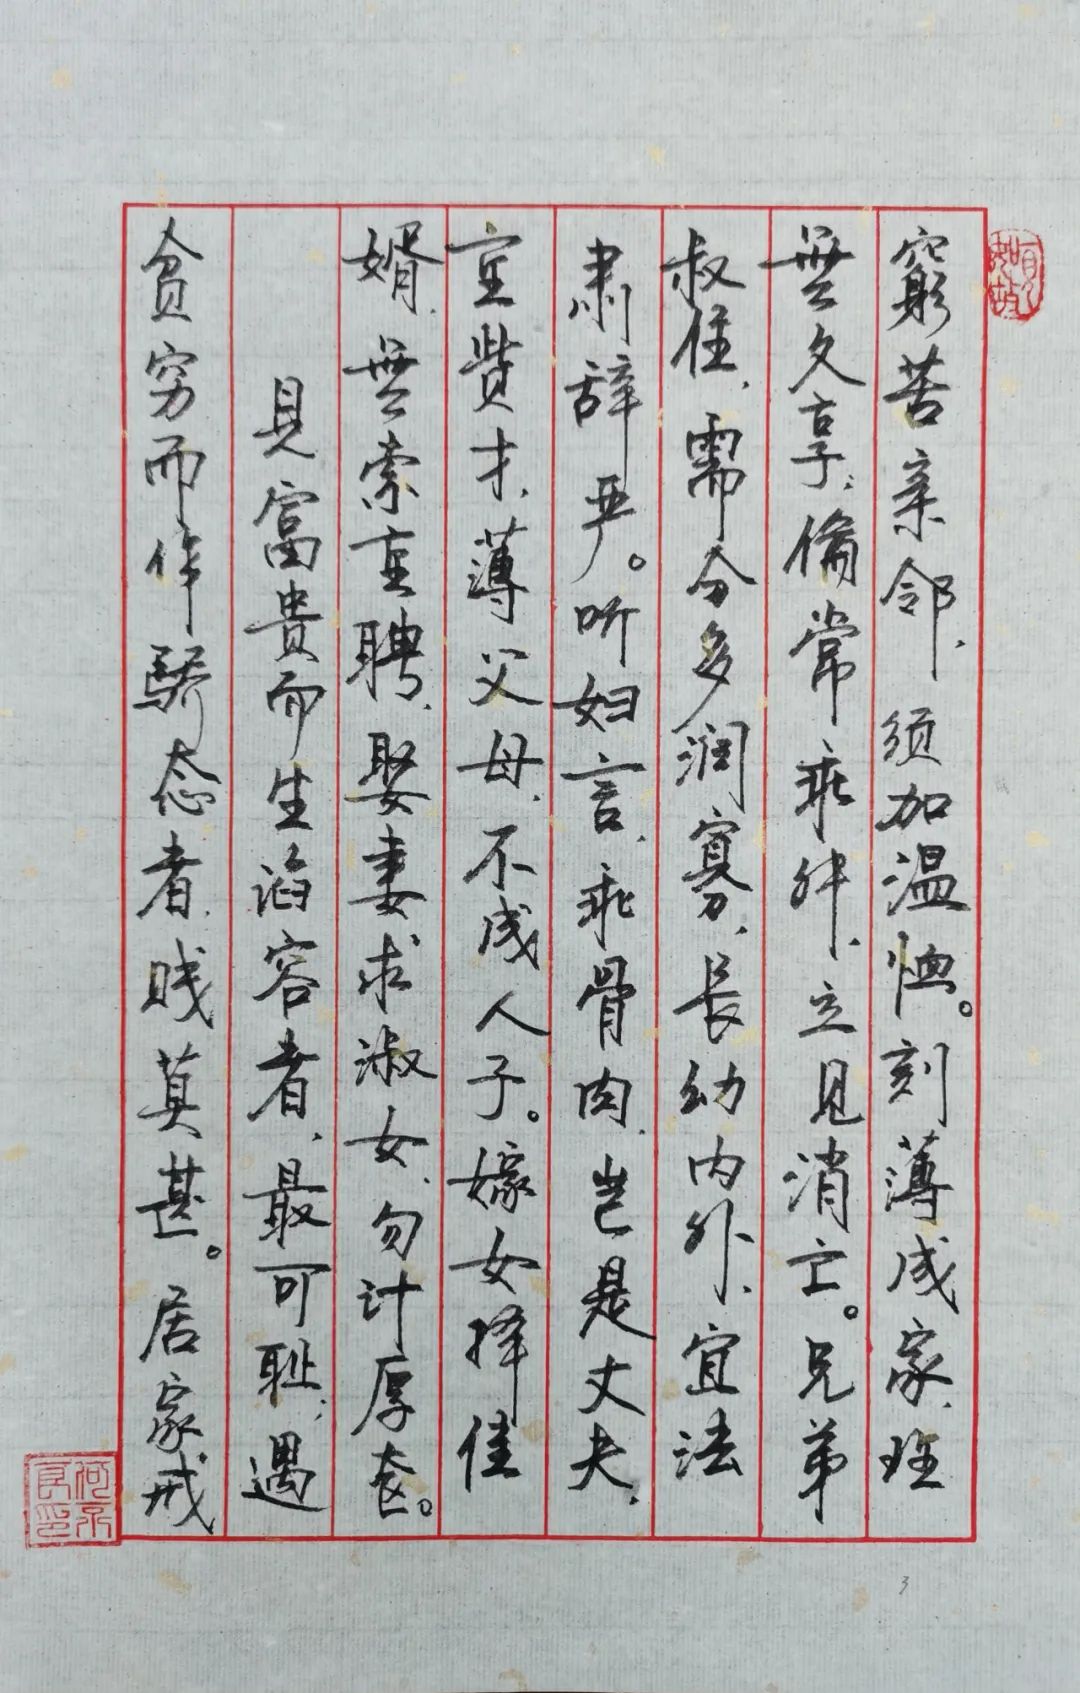 窮苦亲邻,须加温恤。刻薄成家,理
無久享,倫常乖舛,立見消亡。兄弟
叔侄,需分多润寡,長幼内外,宜法
肃辞严。听妇言,乖骨肉,岂是丈夫,
重赀才,薄父母,不成人子。嫁女择佳
婿,無索重聘,娶妻求淑女,勿计厚奁。
見富貴而生谄容者,最可耻;遇
貧穷而作驕态者,贱莫甚。居家戒
3